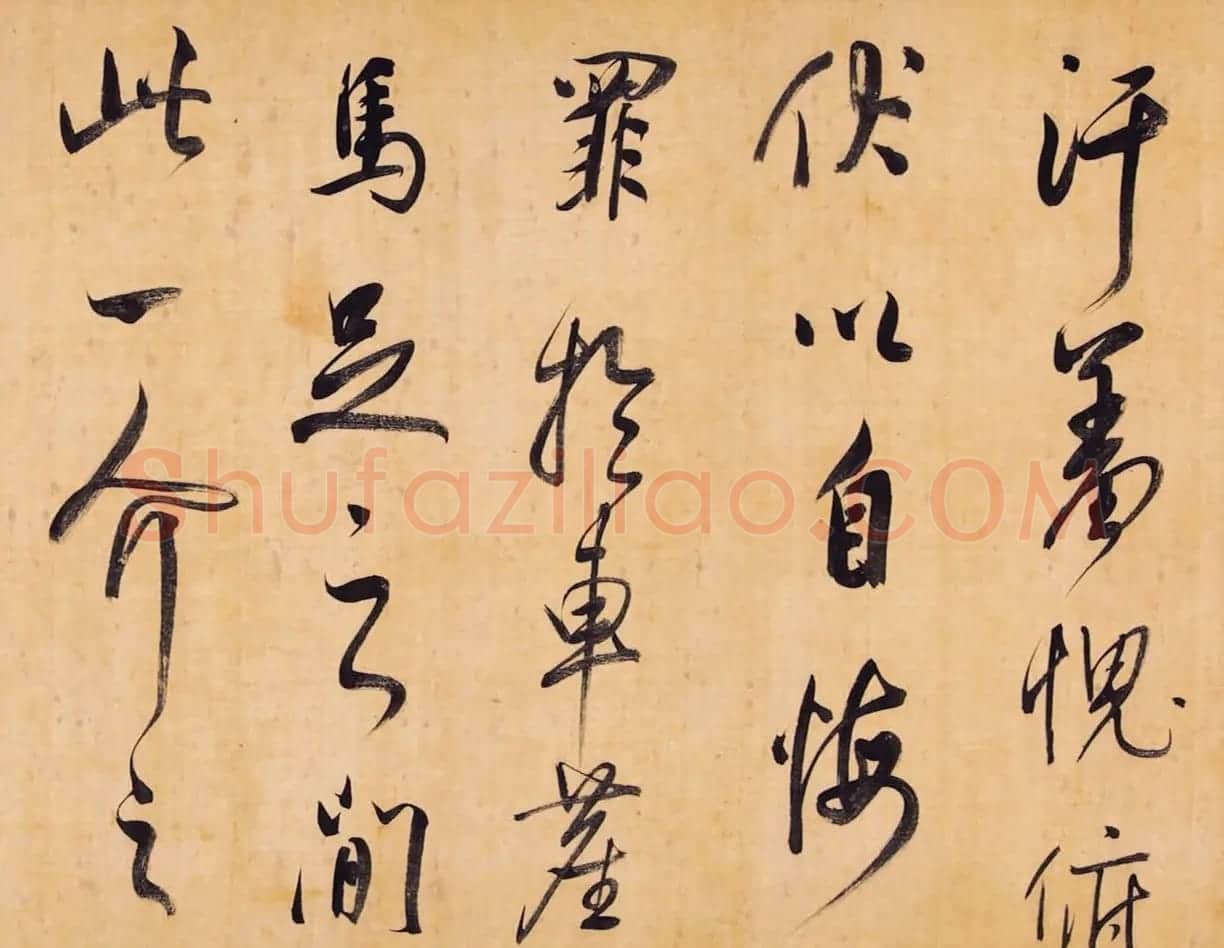 汗羞愧俯
伏以自悔
罪於車塵
馬足之間
此一介之
Shufaziliao.COM